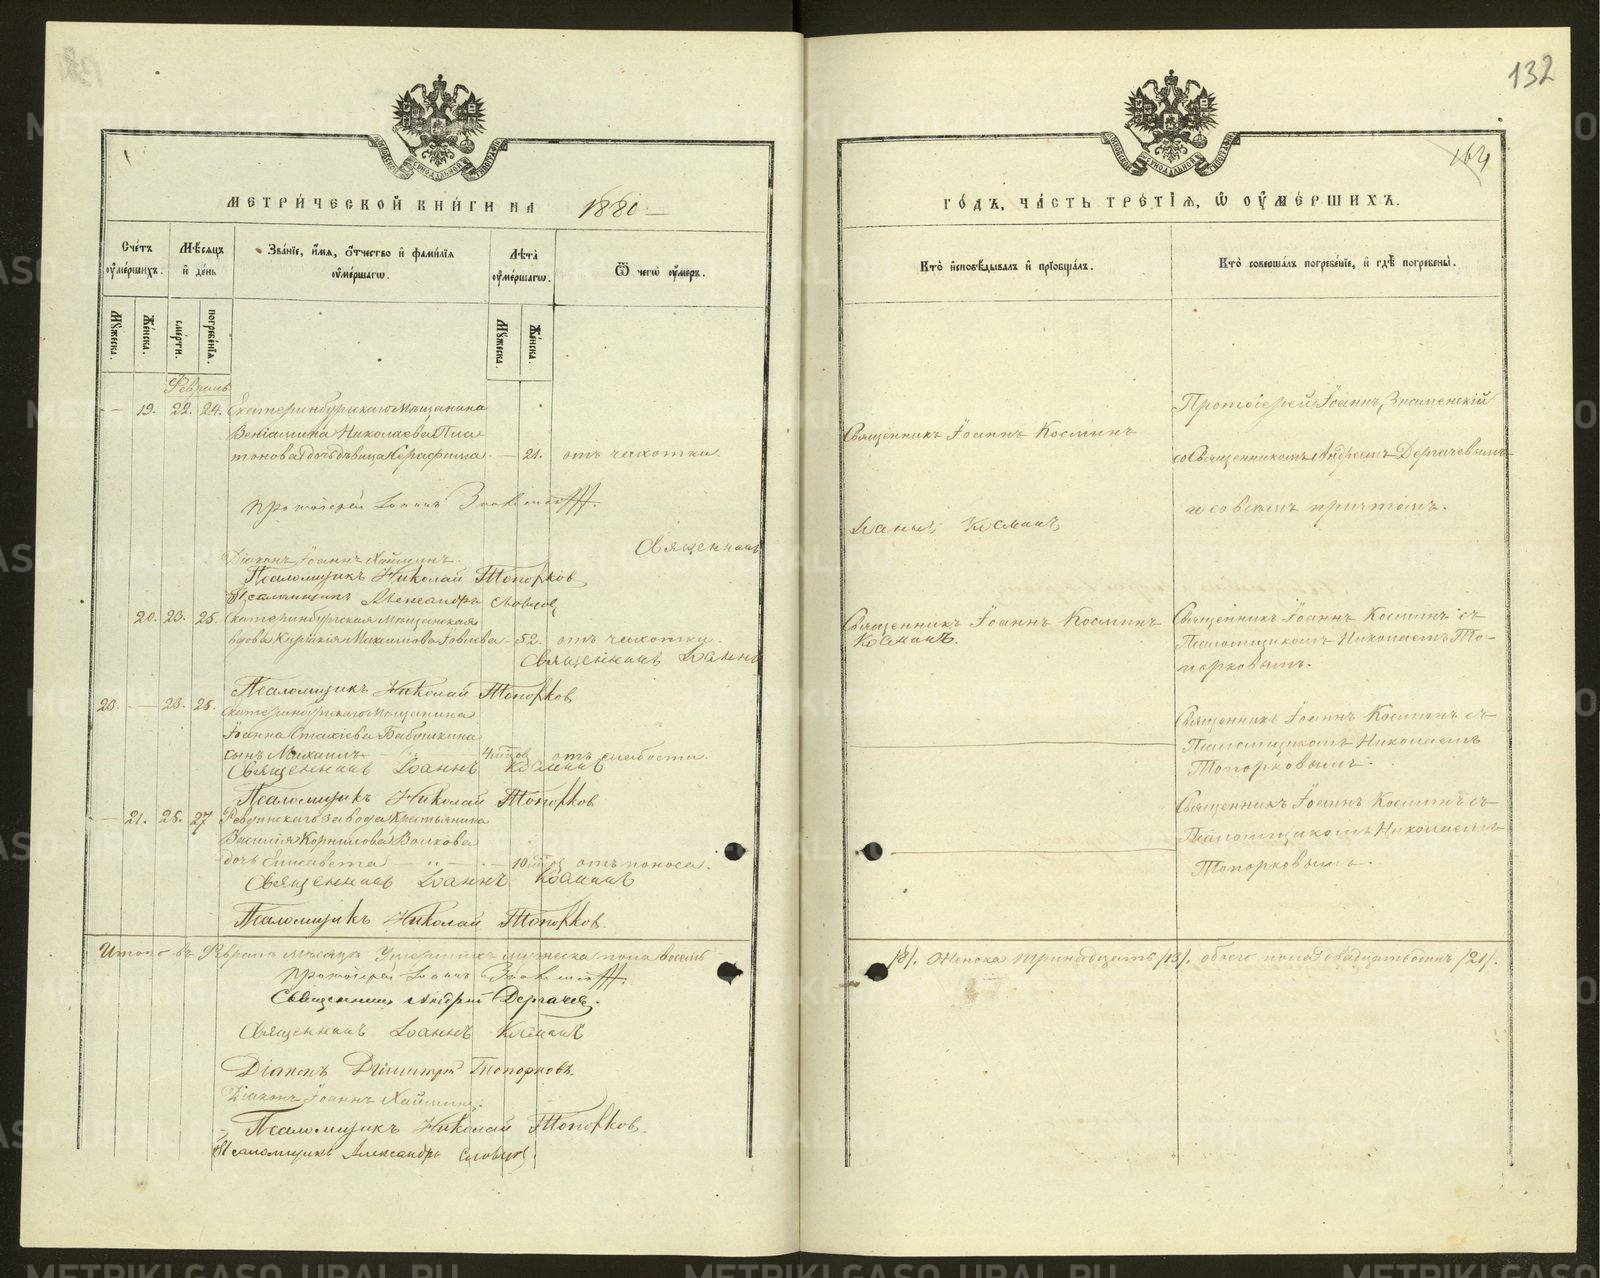 132
164
МЕТРИ́ЧЕСКОЙ КНИ́ГИ НА 1880
ГО́ДЪ, ЧА́СТЬ ТРЕ́ТІЯ, Ѿ ОУМЕ́РШИХЪ.
Сче́тъ оуме́ршихъ.
Мѣ́сяцъ и де́нь
Зва́нїе, и́мя, о́тчество и фами́лїя оуме́ршагѡ.
Лѣта̀ оуме́ршагѡ.
Ѿ чегѡ̀ оу́меръ.
Кто̀ исповѣ́дывалъ и прїобща́лъ.
Кто̀ соверша́лъ погребе́нїе, и гдѣ̀ погребены̀.
Мꙋ́жеска.
Же́нска.
сме́рти.
погребе́нїя.
Мꙋ́жеска.
Же́нска.
Февраль
— 19. 22. 24. Екатеринбургскаго Мѣщанина
Веніамина Николаева Пла-
тонова дочь дѣвица Серафима — 21. отъ чахотки.
Священникъ Іоаннъ Косминъ
Протоіерей Іоаннъ Знаменскій
со Священникомъ Андреемъ Дергачевымъ
и со всемъ причтомъ.
Протоіерей Іоаннъ Знаменскій.
Священникъ
Іоаннъ Косминъ
Діаконъ Іоаннъ
Псаломщикъ Николай Топорков
Псаломщикъ Александръ Словцов
20. 23. 25. Екатеринбургская Мѣщанская
вдова Максимова — 52. отъ чахотки.
Священникъ Іоаннъ Косминъ
Священникъ Іоаннъ Косминъ съ
Псаломщикомъ Николаемъ То-
порковымъ.
Священникъ Іоаннъ
Косминъ.
Псаломщикъ Николай Топорков
23. — 25. Екатеринбургскаго Мѣщанина
Іоанна Бабушкина
сынъ Михаилъ — отъ слабости.
Священникъ Іоаннъ Косминъ съ
Псаломщикомъ Николаемъ
Топорковымъ.
Священникъ Іоаннъ Косминъ
Псаломщикъ Николай Топорков
— 21. 25. 27 Ревдинскаго завода Крестьянина
Василія Корнилова Волкова
дочь Елисавета — 10 отъ поноса.
Священникъ Іоаннъ Косминъ съ
Псаломщикомъ Николаемъ
Топорковымъ.
Священникъ Іоаннъ Косминъ
Псаломщикъ Николай Топорков.
Итого въ Февралѣ мѣсяцѣ Умершихъ мужеска пола восемь /8/. Женска тринадцать /13/. обоего пола двадцать одинъ /21/.
Протоіерей Іоаннъ Знаменскій.
Священникъ Андрей Дергачев.
Священникъ Іоаннъ Косминъ
Діаконъ Димитрій Топорковъ.
Діаконъ Іоаннъ
Псаломщикъ Николай Топорков.
Псаломщикъ Александръ Словцов.
METRIKI.GASO-URAL.RU